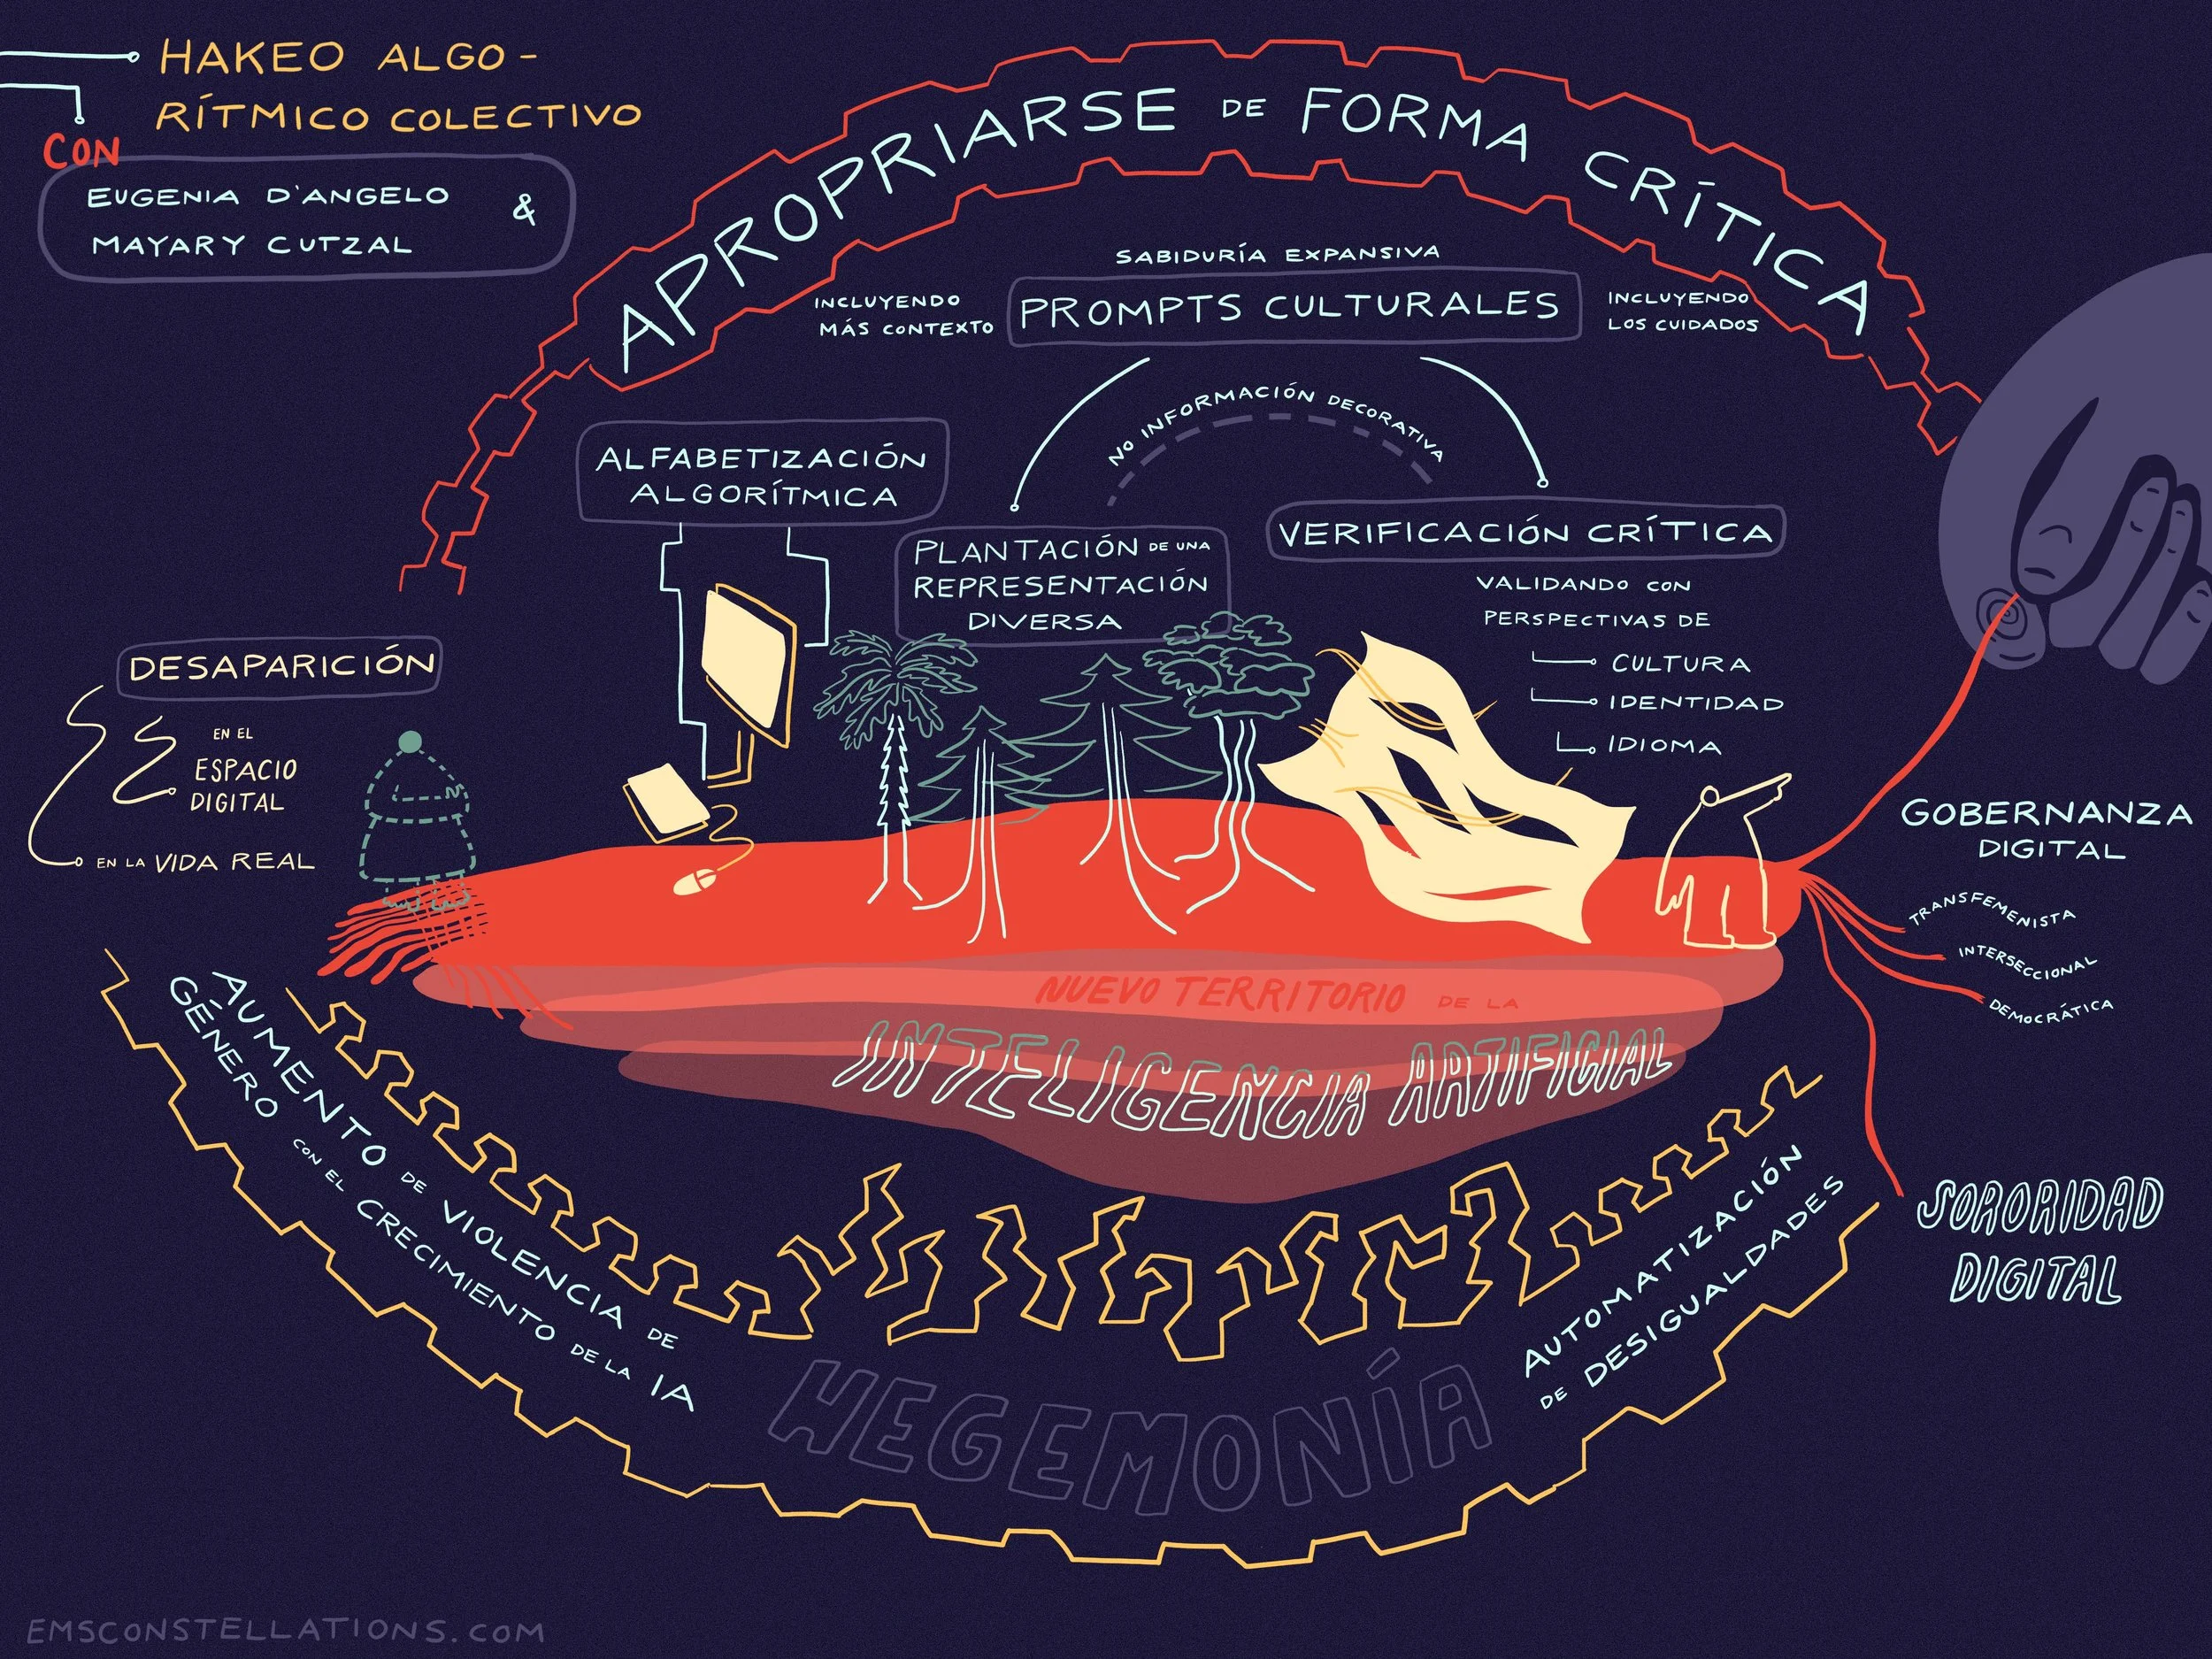 HAKEO ALGO-
RÍTMICO COLECTIVO
CON
EUGENIA D'ANGELO &
MAYARY CUTZAL
APROPIARSE DE FORMA CRÍTICA
SABIDURÍA EXPANSIVA
INCLUYENDO
MÁS CONTEXTO
PROMPTS CULTURALES
INCLUYENDO
LOS CUIDADOS
NO INFORMACIÓN DECORATIVA
ALFABETIZACIÓN
ALGORÍTMICA
PLANTACIÓN DE UNA
REPRESENTACIÓN
DIVERSA
VERIFICACIÓN CRÍTICA
VALIDANDO CON
PERSPECTIVAS DE
CULTURA
IDENTIDAD
IDIOMA
DESAPARICIÓN
EN EL
ESPACIO
DIGITAL
EN LA VIDA REAL
GOBERNANZA
DIGITAL
TRANSFEMENISTA
INTERSECCIONAL
DEMOCRÁTICA
NUEVO TERRITORIO DE LA
INTELIGENCIA ARTIFICIAL
SORORIDAD
DIGITAL
AUMENTO DE VIOLENCIA DE
GÉNERO CON EL CRECIMIENTO DE LA IA
HEGEMONÍA
AUTOMATIZACIÓN
DE DESIGUALDADES
EMSCONSTELLATIONS.COM